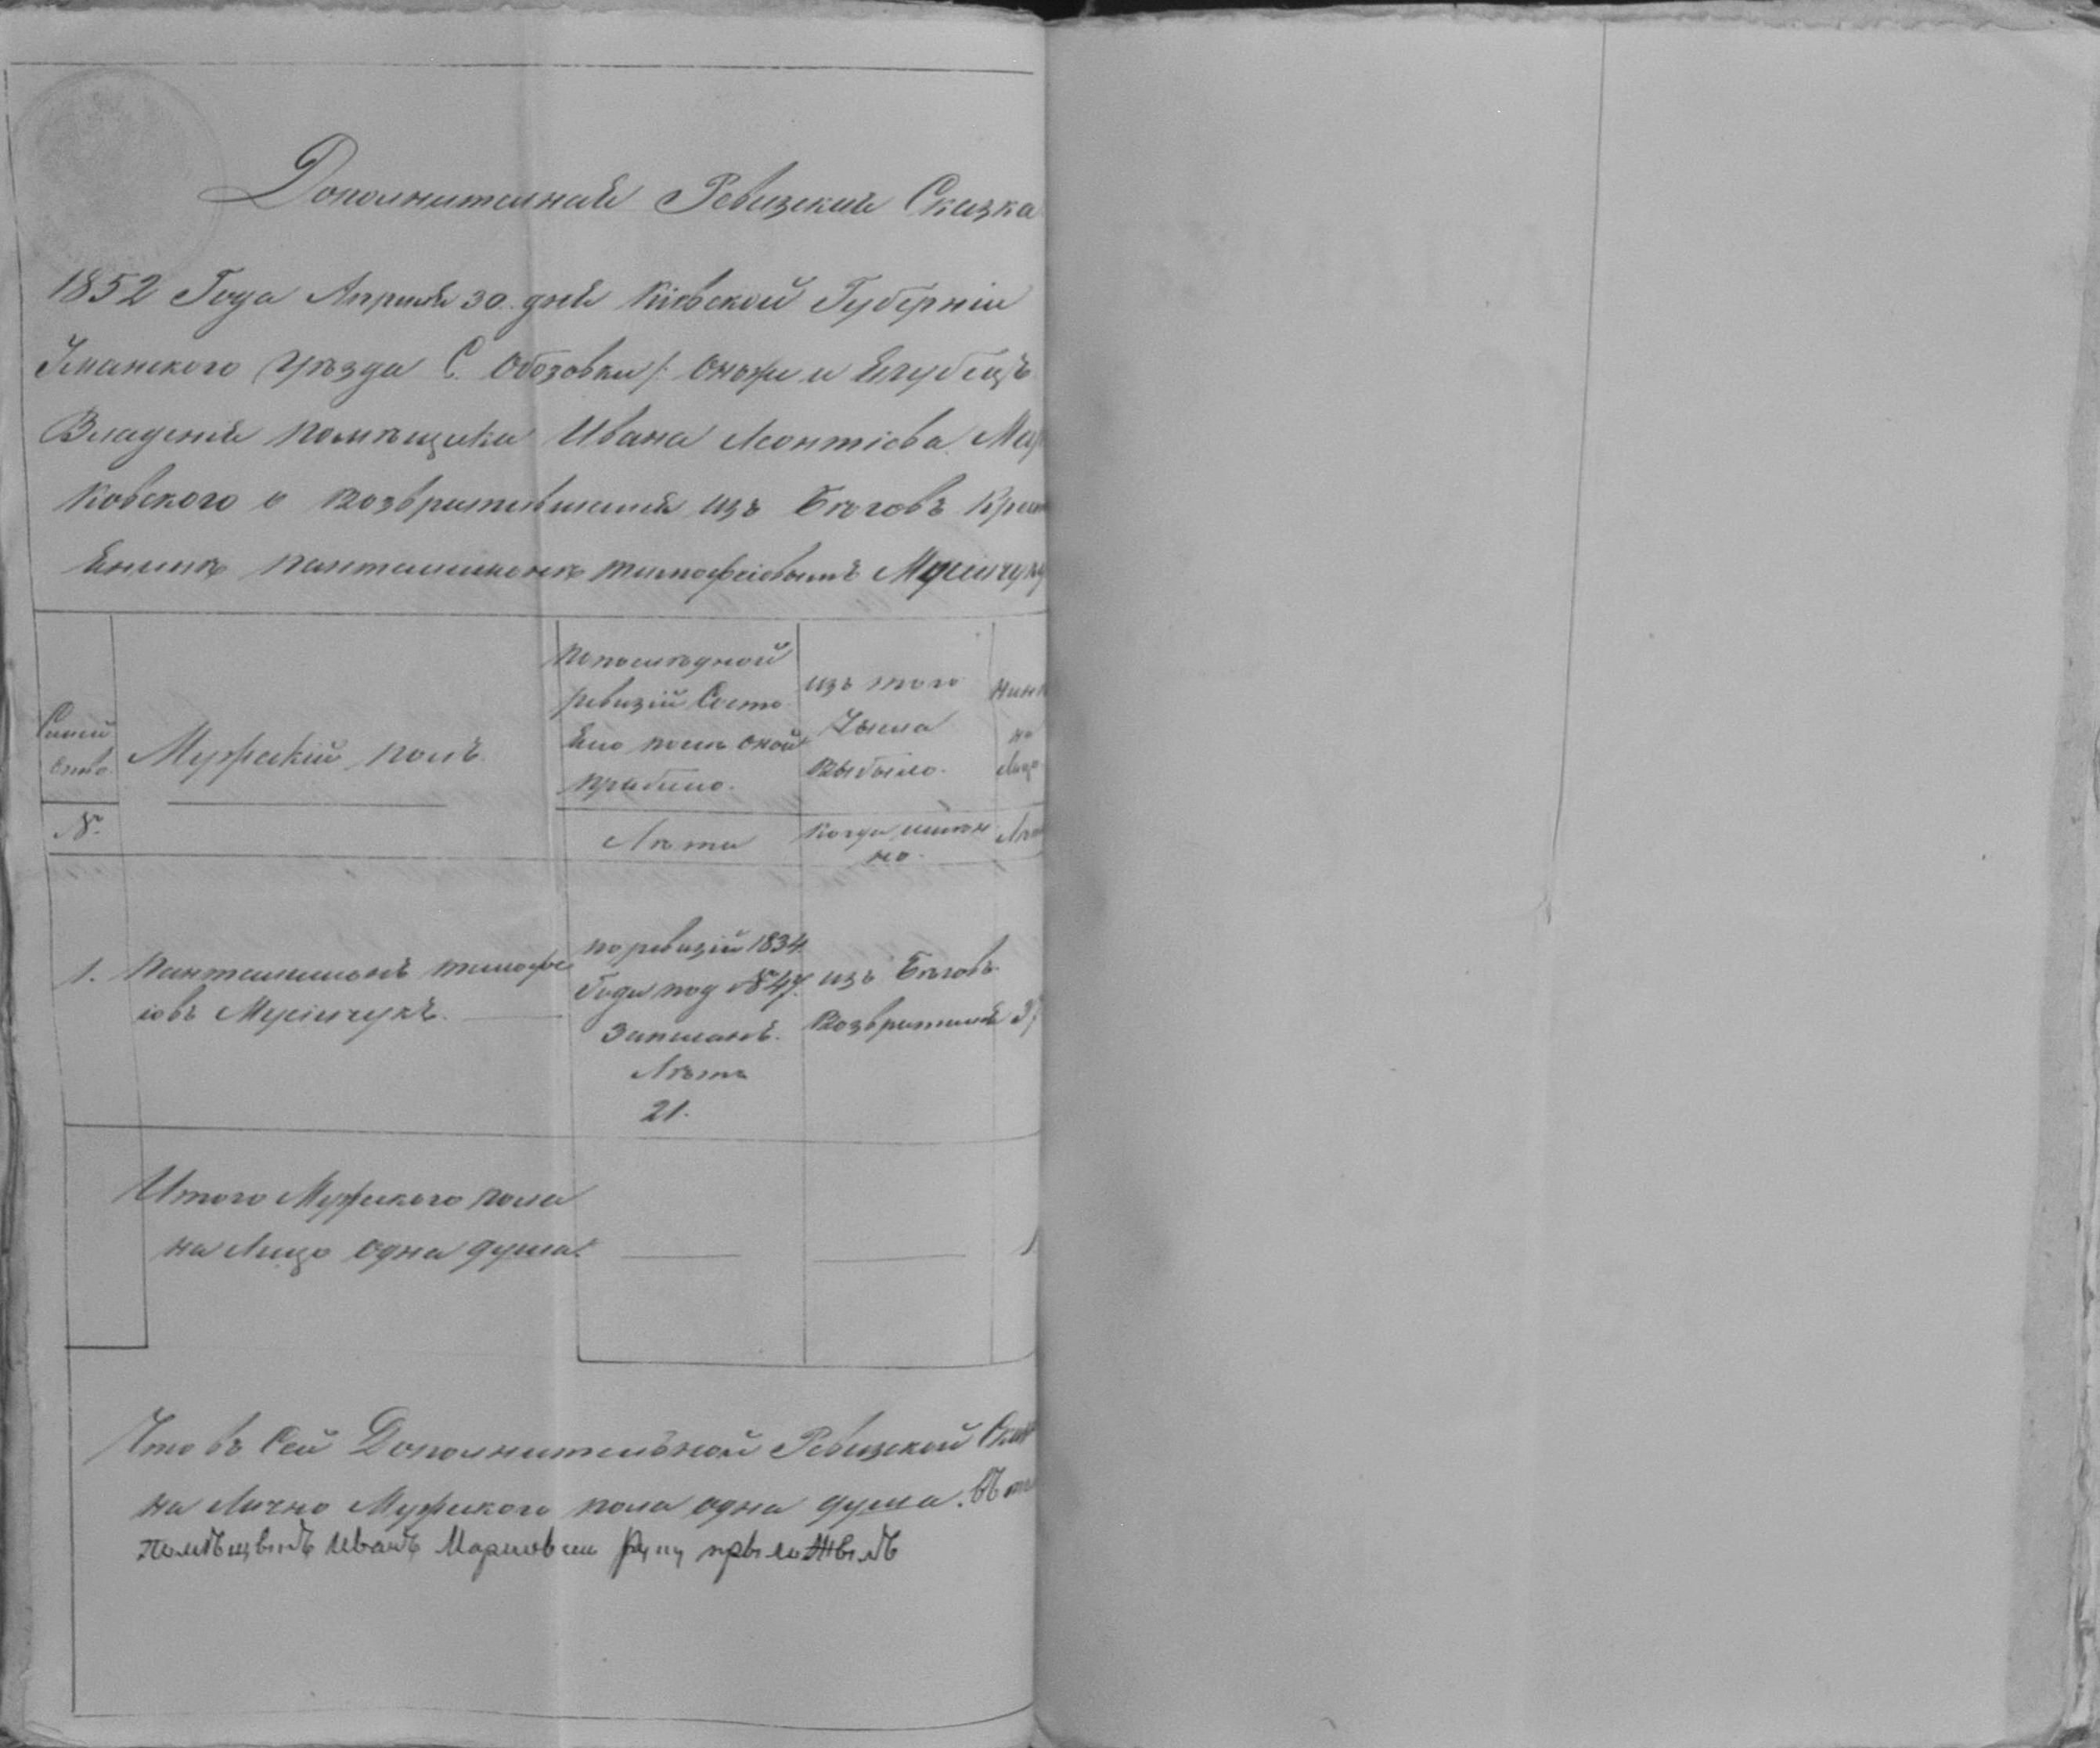 Дополнительная Ревизская Сказка
1852 Года Апреля 30. дня Кіевской Губерніи
Уманского Уѣзда С. Обозовки /: онъже и
Владенія помѣщика Ивана Леонтіева Мар
ковского о возвратившемся изъ бѣговъ Крест
Еннике пантелимоне тимофеіовыmъ Мусіичуку
Семей
ство
№.
Мужескій полъ
По последной
ревизіи Состо
Ело после оной
прибило.
Лета
изъ того
Числа
выбыло.
Когда имен
но.
ныне
на
лицо
Лета
1. Пантелимонъ тимофе
іовъ Мусіичукъ.
по ревизіи 1834
Года под №47.
Записанъ.
Летъ
21.
изъ бѣговъ
Возвратился
37
Итого Мужеского пола
на Лицо одна душа.
1
Что въ Сей Дополнительной Ревизской Сказк
на Лично Мужеского пола одна душа. Въ том
помѣщыкъ Иванъ Марковски Руку прыложылъ